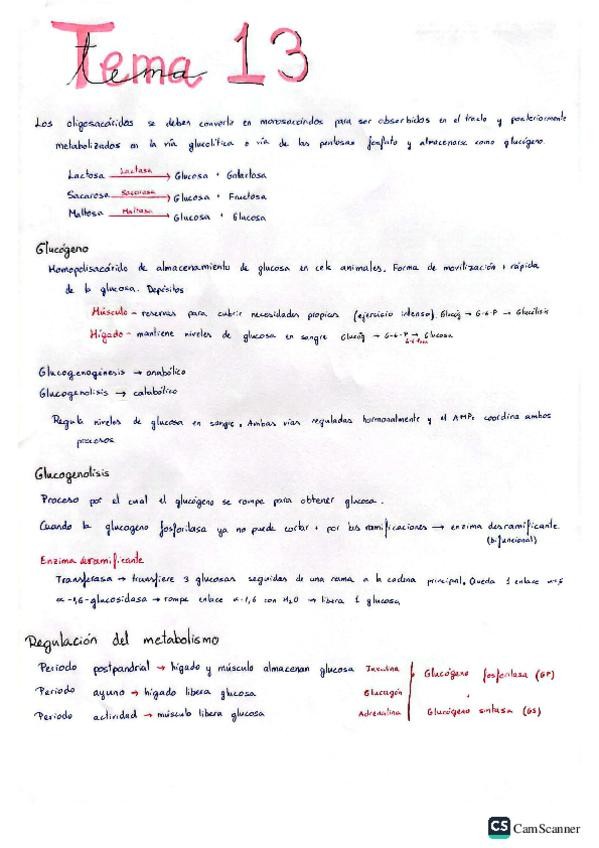 Tema 13
Los oligosacáridos se deben convertir en monosacáridos para ser absorbidos en el tracto y posteriormente
metabolizados en la vía glucolítica o vía de las pentosas fosfato y almacenarse como glucógeno.
Lactosa Lactasa → Glucosa + Galactosa
Sacarosa Sacarasa → Glucosa + Fructosa
Maltosa Maltasa → Glucosa + Glucosa
Glucógeno
Homopolisacárido de almacenamiento de glucosa en cels animales. Forma de movilización + rápida
de la glucosa. Depósitos
Músculo - reservas para cubrir necesidades propias (ejercicio intenso). Glucóg → G-6-P → Glucólisis
Hígado - mantiene niveles de glucosa en sangre Glucóg → G-6-P → Glucosa
Glucogenogénesis → anabólico
Glucogenolisis → catabólico
Regula niveles de glucosa en sangre. Ambas vías reguladas hormonalmente y el AMPc coordina ambos
procesos
Glucogenolisis
Proceso por el cual el glucógeno se rompe para obtener glucosa.
Cuando la glucogeno fosforilasa ya no puede cortar + por las ramificaciones → enzima desramificante
(bifuncional)
Enzima desramificante
Transferasa → transfiere 3 glucosas seguidas de una rama a la cadena principal. Queda 1 enlace α-1,6
α-1,6-glucosidasa → rompe enlace α-1,6 con H₂O → libera 1 glucosa
Regulación del metabolismo
Periodo postpandrial → hígado y músculo almacenan glucosa Insulina Glucógeno fosforilasa (GP)
Periodo ayuno → hígado libera glucosa Glucagón
Periodo actividad → músculo libera glucosa Adrenalina Glucógeno sintasa (GS)
CS CamScanner